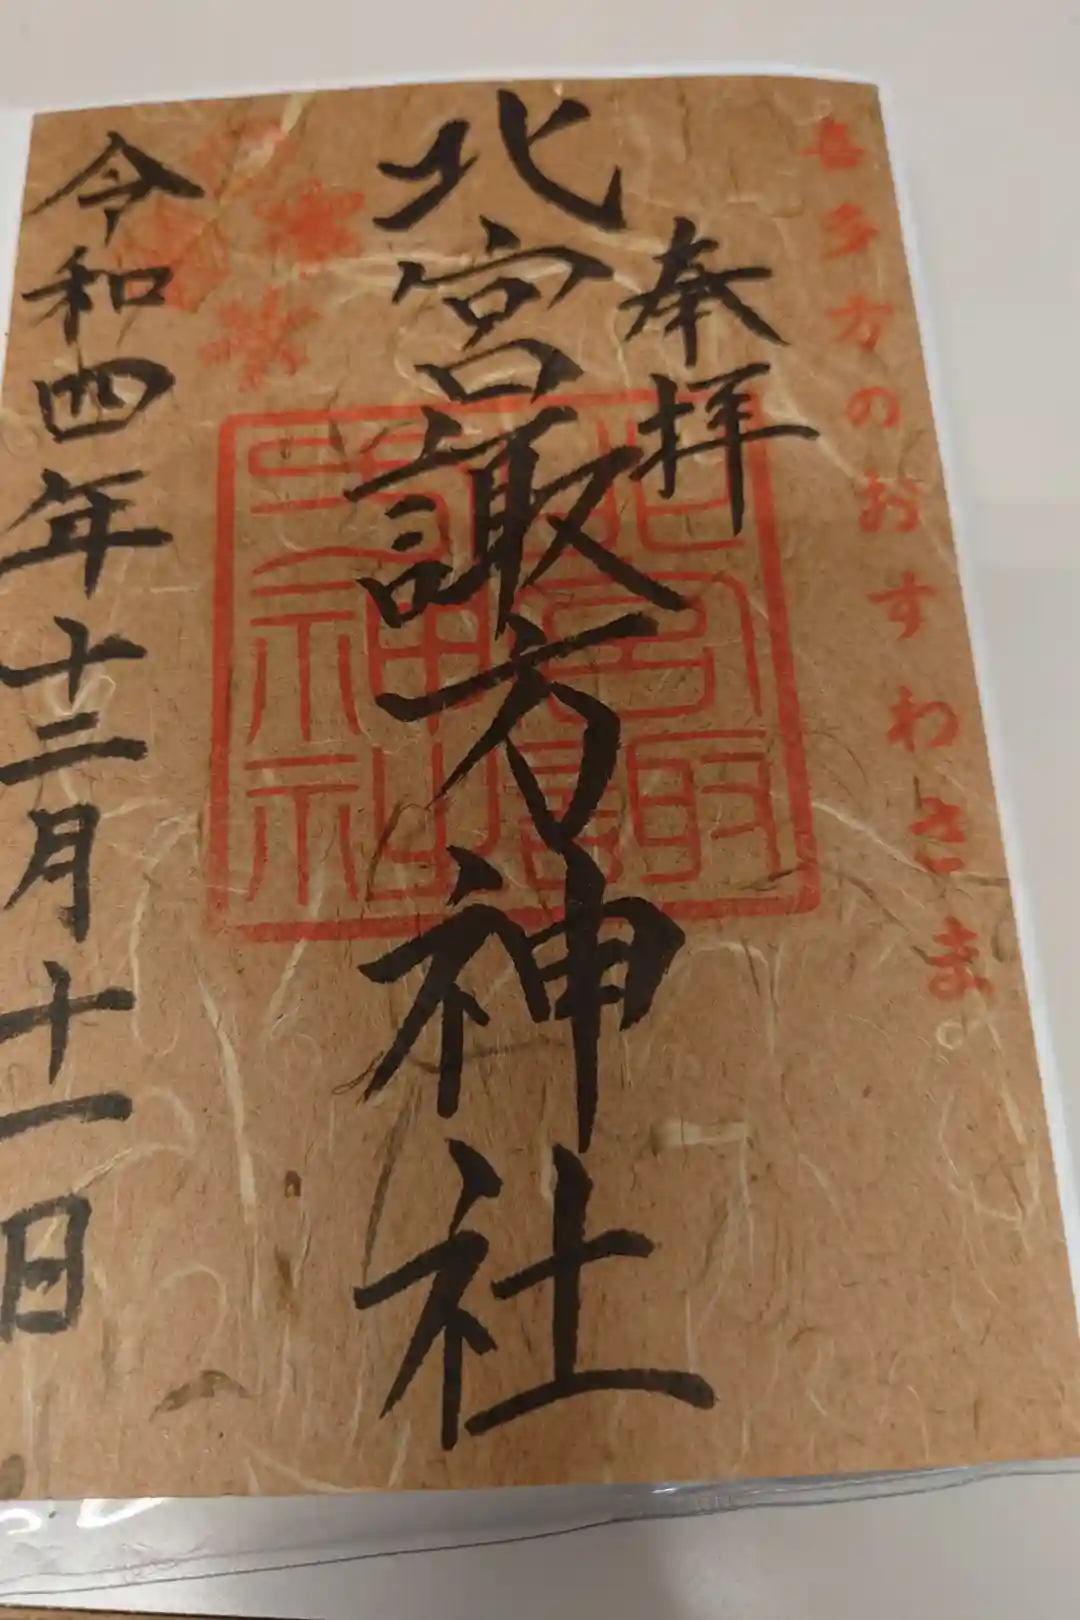 喜多方のおすわさま
奉拝
北宮諏方神社
北宮諏方神社
令和四年十二月十一日